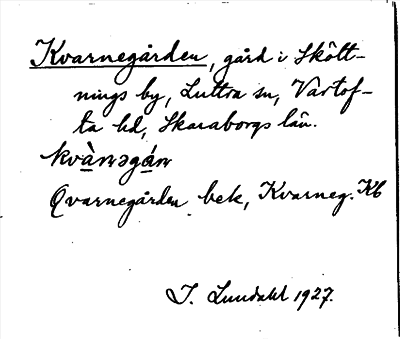 Kvarnegården, gård i Skött-
nings by, Luttra sn, Vartof-
ta hd, Skaraborgs län.
kvàrnəgán
Qvarnegården bek, Kvarneg. Kb
J. Lundahl 1927.